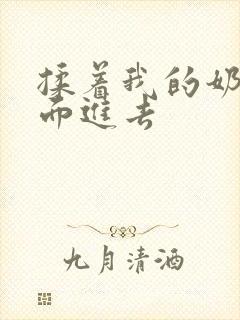 揉着我的奶
而进去
九月清酒